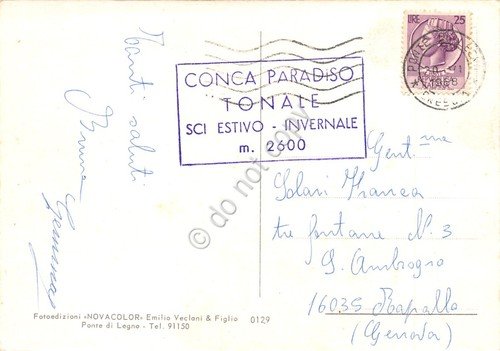 Tanti saluti
Bruna
Gemma
CONCA PARADISO
TONALE
SCI ESTIVO - INVERNALE
m. 2600
LIRE 25
Gent.ma
Solari Franca
tre fontane N. 3
S. Ambrogio
16035 Rapallo
(Genova)
Fotoedizioni «NOVACOLOR» Emilio Veclani & Figlio 0129
Ponte di Legno - Tel. 91150
do not copy